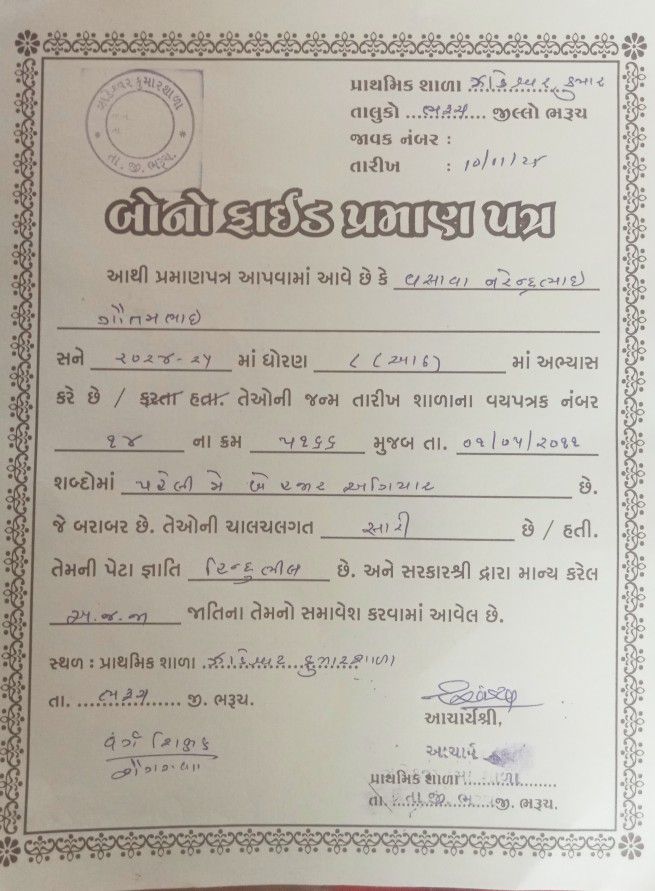 ઝાડેશ્વર કુમારશાળા
તા. જી. ભરૂચ.
પ્રાથમિક શાળા ઝાડેશ્વર કુમાર
તાલુકો ...ભરૂચ.... જીલ્લો ભરૂચ
જાવક નંબર :
તારીખ : 10/11/24
બોનોફાઈડ પ્રમાણ પત્ર
આથી પ્રમાણપત્ર આપવામાં આવે છે કે વસાવા નરેન્દ્રભાઇ
ગૌતમભાઇ
સને ૨૦૨૪-૨૫ માં ધોરણ ૮ (આઠ) માં અભ્યાસ
કરે છે / કરતા હતા. તેઓની જન્મ તારીખ શાળાના વયપત્રક નંબર
૧૪ ના ક્રમ ૫૧૬૬ મુજબ તા. ૦૧/૦૫/૨૦૧૧
શબ્દોમાં પહેલી મે બે હજાર અગિયાર છે.
જે બરાબર છે. તેઓની ચાલચલગત સારી છે / હતી.
તેમની પેટા જ્ઞાતિ હિન્દુ ભીલ છે. અને સરકારશ્રી દ્વારા માન્ય કરેલ
અ.જ.જા જાતિના તેમનો સમાવેશ કરવામાં આવેલ છે.
સ્થળ : પ્રાથમિક શાળા ઝાડેશ્વર કુમારશાળા
તા. ...ભરૂચ...... જી. ભરૂચ.
આચાર્યશ્રી,
વર્ગ શિક્ષક
આચાર્ય
પ્રાથમિક શાળા
તા. તા.જી. ભ જી. ભરૂચ.